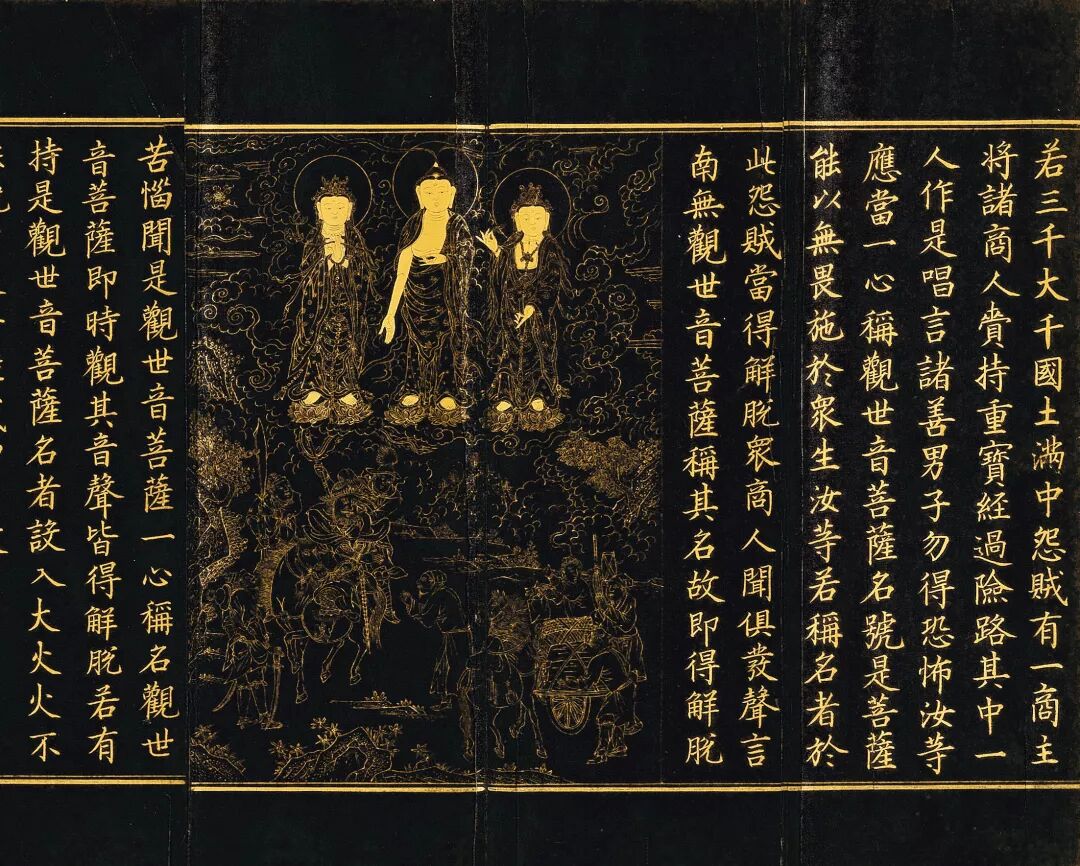 若三千大千國土滿中怨賊有一商主
將諸商人賷持重寶經過險路其中一
人作是唱言諸善男子勿得恐怖汝等
應當一心稱觀世音菩薩名號是菩薩
能以無畏施於衆生汝等若稱名者於
此怨賊當得解脱衆商人聞俱發聲言
南無觀世音菩薩稱其名故即得解脱
苦惱聞是觀世音菩薩一心稱名觀世
音菩薩即時觀其音聲皆得解脱若有
持是觀世音菩薩名者設入大火火不